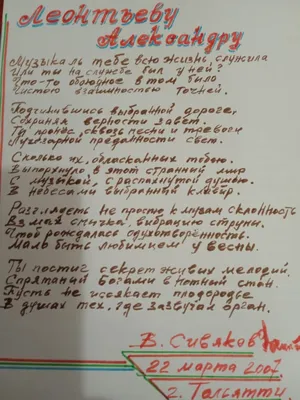 Леонтьеву
Александру
Музыка ль тебе всю жизнь служила
Или ты на службе был у ней?
Что-то обоюдное в том было
Чистою взаимностью точней.
Подчинившись выбранной дороге,
Сохраняя верности завет.
Ты пронёс, сквозь песни и тревоги
Лучезарной преданности свет.
Сколько их, обласканных тобою.
Выпорхнуло, в этот странный мир
С музыкой, с распахнутой душою.
В небесами выбранный клавир.
Разглядеть не просто к музам склонность
Взмах смычка, вибрацию струны.
Чтоб рождалась одухотворённость.
Мало быть любимцем у весны.
Ты постиг секрет живых мелодий.
Спрятанный Богами в нотный стан.
Пусть не иссякает плодородье
В душах тех, где зазвучал орган.
В. Сивяков
22 марта 2007.
г. Тольятти